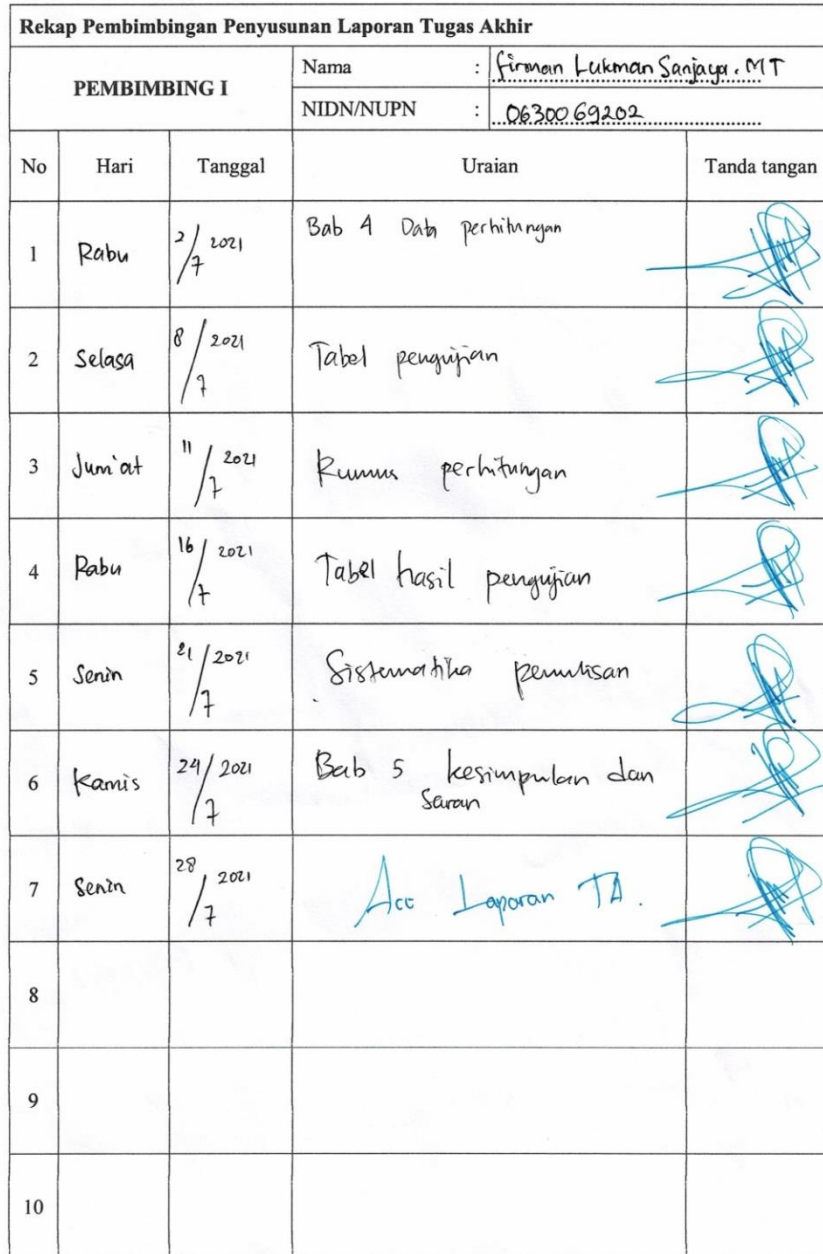 Rekap Pembimbingan Penyusunan Laporan Tugas Akhir
PEMBIMBING I
Nama : Firman Lukman Sanjaya. MT
NIDN/NUPN : 0630069202
No Hari Tanggal Uraian Tanda tangan
1 Rabu 2/7 2021 Bab 4 Data perhitungan
2 Selasa 8/7 2021 Tabel pengujian
3 Jum'at 11/7 2021 Rumus perhitungan
4 Rabu 16/7 2021 Tabel hasil pengujian
5 Senin 21/7 2021 Sistematika penulisan
6 Kamis 24/7 2021 Bab 5 kesimpulan dan
Saran
7 Senin 28/7 2021 Acc Laporan TA.
8
9
10